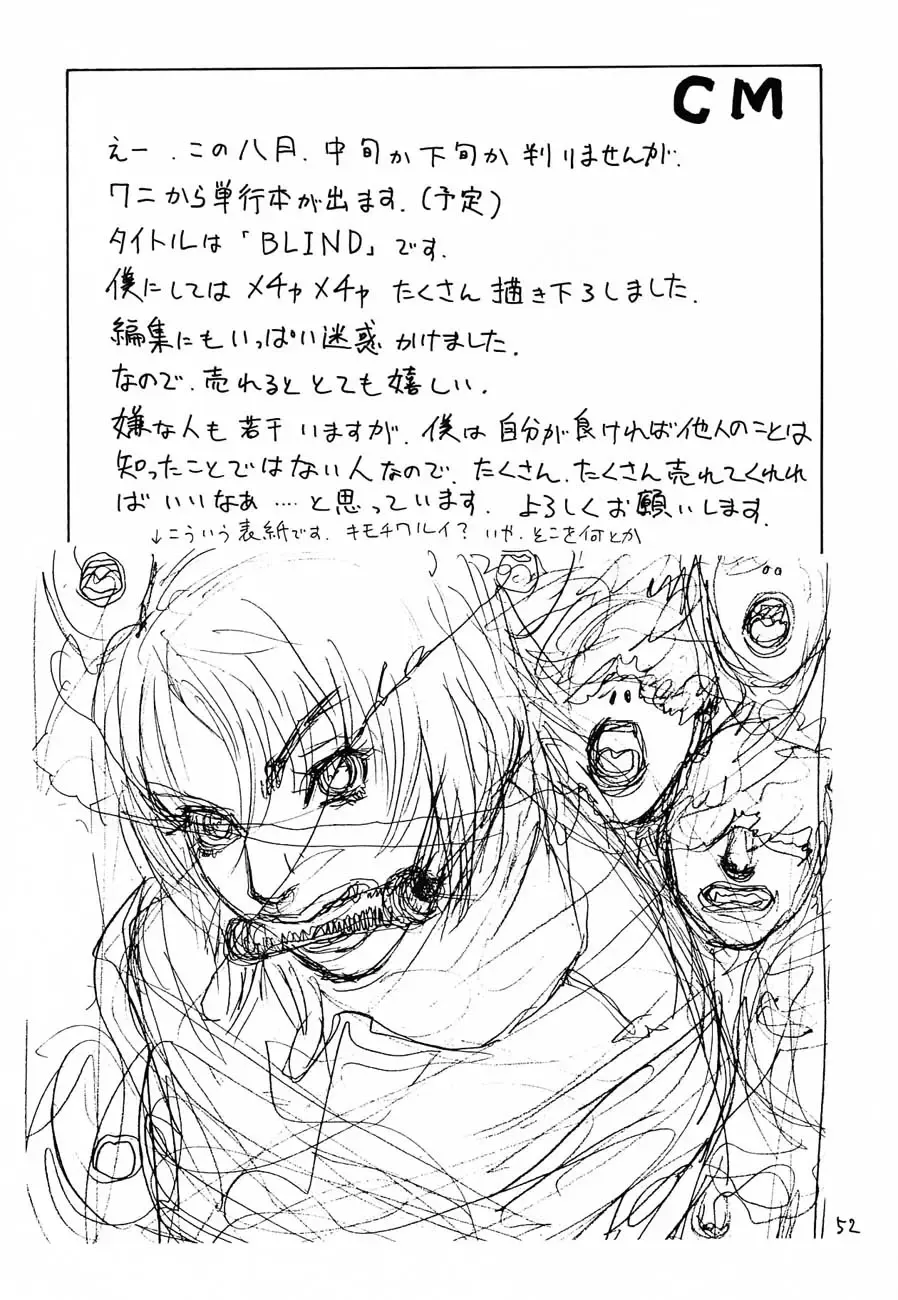 CM
えー．この八月．中旬か下旬か判りませんが．
ワニから単行本が出ます．(予定)
タイトルは「BLIND」です．
僕にしてはメチャメチャたくさん描き下ろしました．
編集にもいっぱい迷惑かけました．
なので．売れるととても嬉しい．
嫌な人も若干いますが．僕は自分が良ければ他人のことは
知ったことではない人なので．たくさん．たくさん売れてくれれ
ばいいなぁ‥‥と思っています．よろしくお願いします．
↓こういう表紙です．キモチワルイ？いや．そこを何とか
52